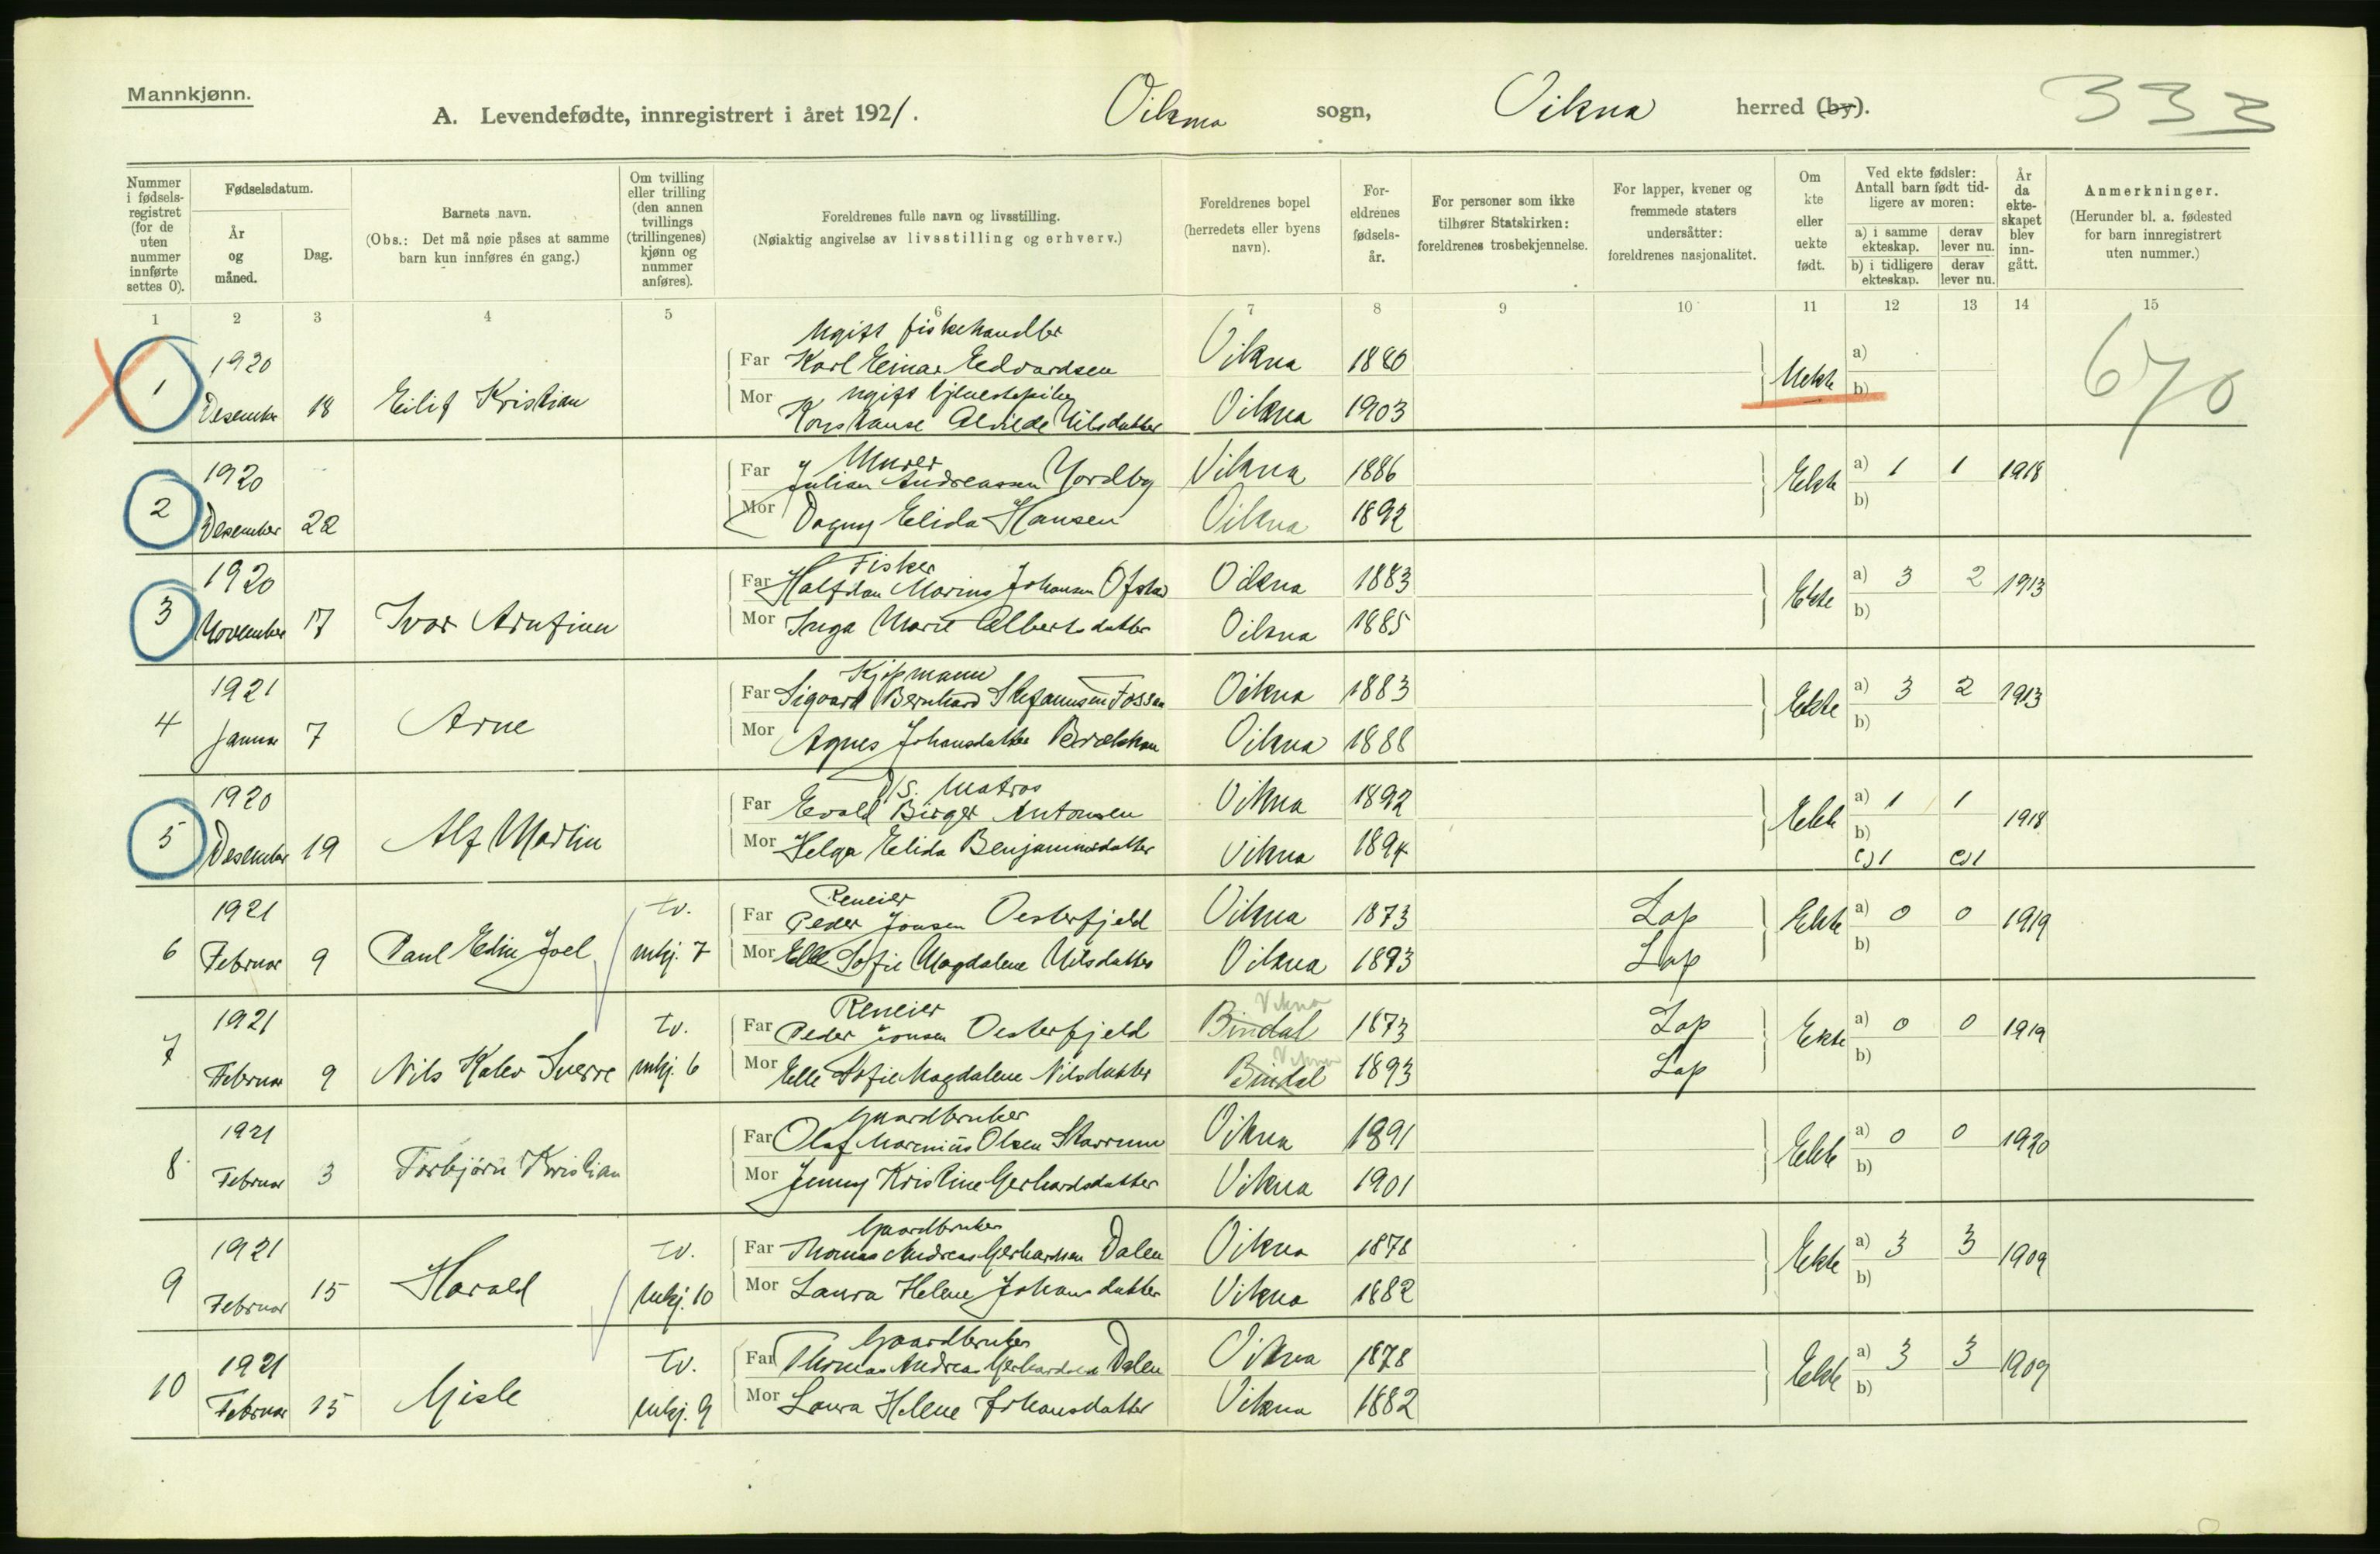 Mannkjønn.
A. Levendefødte, innregistrert i året 1921. Vikna sogn, Vikna herred (by).
333
Nummer i fødsels-registret (for de uten nummer innførte settes 0).
Fødselsdatum.
År og måned.
Dag.
Barnets navn.
(Obs.: Det må nøie påses at samme barn kun innføres én gang.)
Om tvilling eller trilling (den annen tvillings (trillingenes) kjønn og nummer anføres).
Foreldrenes fulle navn og livsstilling.
(Nøiaktig angivelse av livsstilling og erhverv.)
Foreldrenes bopel (herredets eller byens navn).
For-eldrenes fødsels-år.
For personer som ikke tilhører Statskirken: foreldrenes trosbekjennelse.
For lapper, kvener og fremmede staters undersåtter: foreldrenes nasjonalitet.
Om kte eller uekte født.
Ved ekte fødsler: Antall barn født tid-ligere av moren:
a) i samme ekteskap. derav lever nu.
b) i tidligere ekteskap. derav lever nu.
År da ekte-skapet blev inn-gått.
Anmerkninger.
(Herunder bl. a. fødested for barn innregistrert uten nummer.)
1 2 3 4 5 6 7 8 9 10 11 12 13 14 15
Ugift fiskehandler
1 1920 Far Karl Einar Edvardsen Vikna 1880 Uekte a)
Desember 18 Eilif Kristian Mor ugift tjenestepike b) 670
Konstanse Alvilde Nilsdatter Vikna 1903
Murer
2 1920 Far Julian Andreassen Nordby Vikna 1886 Ekte a) 1 1 1918
Desember 22 Mor Dagny Elida Hansen Vikna 1892 b)
Fisker
3 1920 Far Halfdan Marius Johansen Ofstad Vikna 1883 Ekte a) 3 2 1913
November 17 Ivar Arnfinn Mor Inga Marie Albertsdatter Vikna 1885 b)
Kjøpmann
4 1921 Far Sigvard Bernhard Stefanussen Fossaa Vikna 1883 Ekte a) 3 2 1913
Januar 7 Arne Mor Agnes Johansdatter Vikna 1888 b)
D/S. Matros
5 1920 Far Evald Birger Antonsen Vikna 1892 Ekte a) 1 1 1918
Desember 19 Alf Martin Mor Helga Elida Benjaminsdatter Vikna 1894 b)
c) 1 c) 1
Reneier
6 1921 tv. Far Peder Jonsen Oesterfjeld Vikna 1873 Lap Ekte a) 0 0 1919
Februar 9 Paul Edin Joel mkj. 7 Mor Elle Sofie Magdalene Nilsdatter Vikna 1893 Lap b)
Reneier Vikna
7 1921 tv. Far Peder Jonsen Oesterfjeld Bindal 1873 Lap Ekte a) 0 0 1919
Vikna
Februar 9 Nils Kalev Sverre mkj. 6 Mor Elle Sofie Magdalene Nilsdatter Bindal 1893 Lap b)
Gaardbruker
8 1921 Far Olaf Marenius Olsen Starrum Vikna 1891 Ekte a) 0 0 1920
Februar 3 Torbjørn Kristian Mor Jenny Kristine Gerhardsdatter Vikna 1901 b)
Gaardbruker
9 1921 tv. Far Thomas Andreas Gerhardsen Dalen Vikna 1878 Ekte a) 3 3 1909
Februar 15 Harald mkj. 10 Mor Laura Helene Johansdatter Vikna 1882 b)
Gaardbruker
10 1921 tv. Far Thomas Andreas Gerhardsen Dalen Vikna 1878 Ekte a) 3 3 1909
Februar 15 Gisle mkj. 9 Mor Laura Helene Johansdatter Vikna 1882 b)